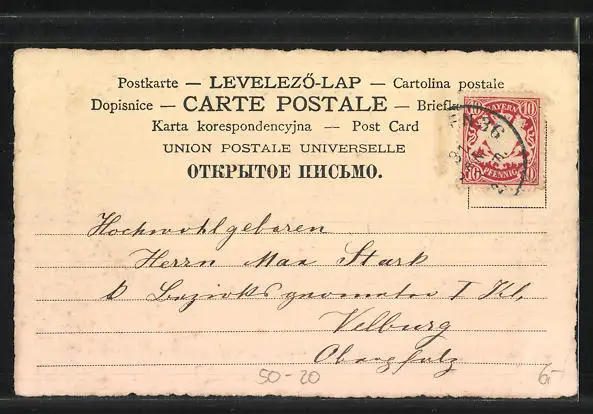 Postkarte — LEVELEZŐ-LAP — Cartolina postale
Dopisnice — CARTE POSTALE — Briefk
Karta korespondencyjna — Post Card
UNION POSTALE UNIVERSELLE
ОТКРЫТОЕ ПИСЬМО.
BAYERN 10
10 PFENNIG 10
Hochwohlgeboren
Herrn Max Stark
k Bezirksgeometer I Kl.
Velburg
Oberpfalz
50-20
6,-